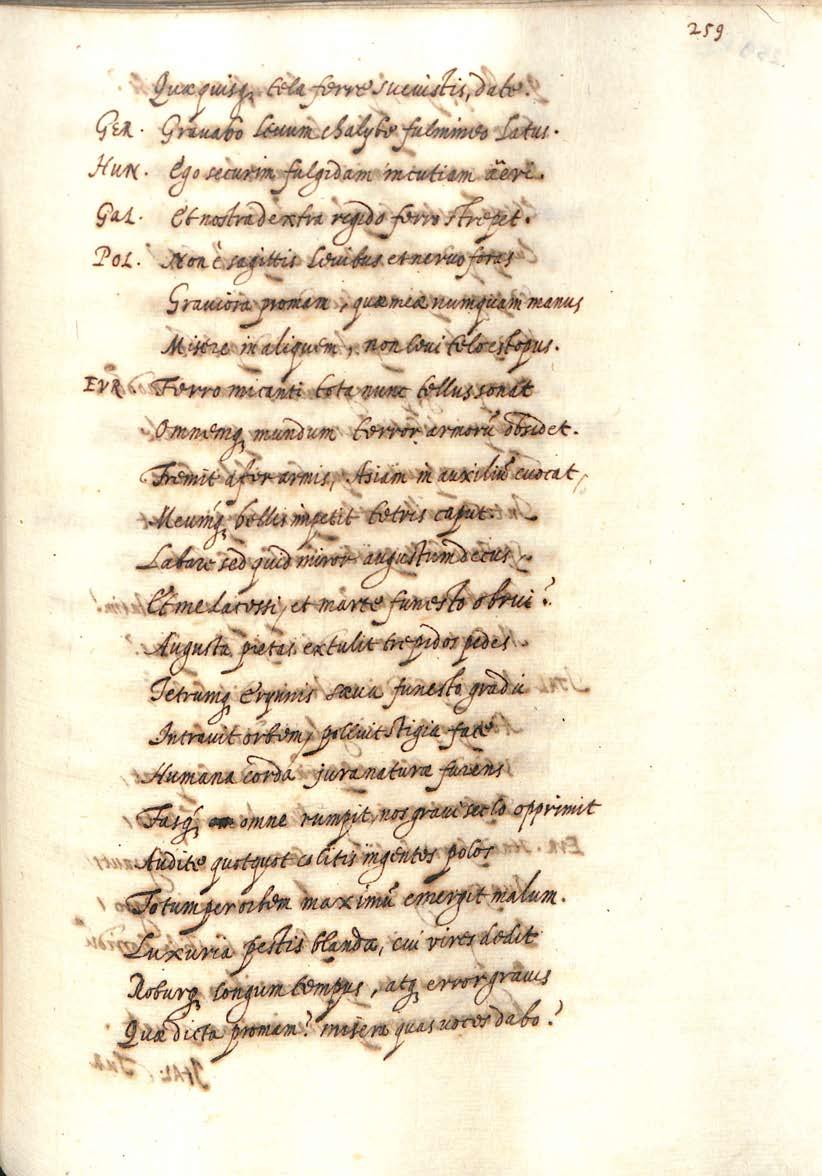 259
Quæ quisq; tela ferre suevistis, date.
GER. Gravabo levum chalybe fulmineo latus.
HUN. Ego securim fulgidam incutiam äeri.
GAL. Et nostra dextra rigido ferro strepet.
POL. Non è sagittis levibus et nervo
Graviora promam, quæ meæ numquam manus
Misere in aliquem, non levi telo est opus.
EUR. Ferro micanti tota nunc tellus sonat
Omnemq; mundum terror armorū obsidet.
Fremit afer armis, Asiam in auxiliū evocat,
Meumq; bellis impetit tetris caput.
Labare sed quid miror augustum decus
Et me lacessi, et marte funesto obrui?
Augusta pietas extulit trepidos pedes
Tetrumq; Erynnis sæva funesto gradu
Intravit orbem, polluit stigia face
Humana corda jura naturæ furens
Fasq; omne rumpit, nos gravi seclo opprimit
Audite quotquot colitis ingentes polos
Totum per orbem maximū emergit malum.
Luxuria pestis blanda, cui vires dedit
Roburq; longum tempus, atq; error gravis
Quæ dicta promam? misera quas voces dabo?